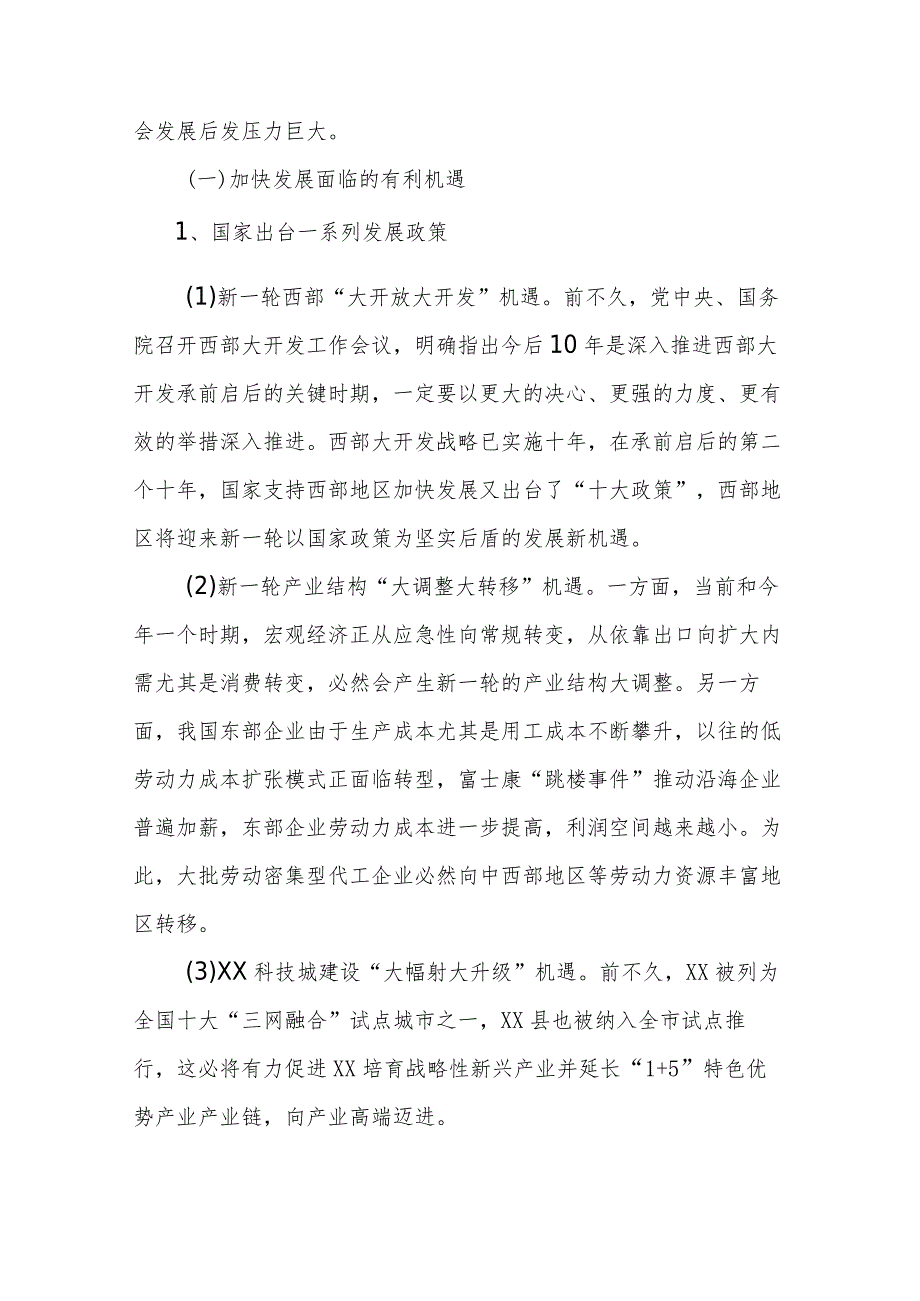 会发展后发压力巨大。
(一)加快发展面临的有利机遇
1、国家出台一系列发展政策
(1)新一轮西部“大开放大开发”机遇。前不久，党中央、国务
院召开西部大开发工作会议，明确指出今后10年是深入推进西部大
开发承前启后的关键时期，一定要以更大的决心、更强的力度、更有
效的举措深入推进。西部大开发战略已实施十年，在承前启后的第二
个十年，国家支持西部地区加快发展又出台了“十大政策”，西部地
区将迎来新一轮以国家政策为坚实后盾的发展新机遇。
(2)新一轮产业结构“大调整大转移”机遇。一方面，当前和今
年一个时期，宏观经济正从应急性向常规转变，从依靠出口向扩大内
需尤其是消费转变，必然会产生新一轮的产业结构大调整。另一方
面，我国东部企业由于生产成本尤其是用工成本不断攀升，以往的低
劳动力成本扩张模式正面临转型，富士康“跳楼事件”推动沿海企业
普遍加薪，东部企业劳动力成本进一步提高，利润空间越来越小。为
此，大批劳动密集型代工企业必然向中西部地区等劳动力资源丰富地
区转移。
(3)XX科技城建设“大幅射大升级”机遇。前不久，XX被列为
全国十大“三网融合”试点城市之一，XX县也被纳入全市试点推
行，这必将有力促进XX培育战略性新兴产业并延长“1+5”特色优
势产业产业链，向产业高端迈进。